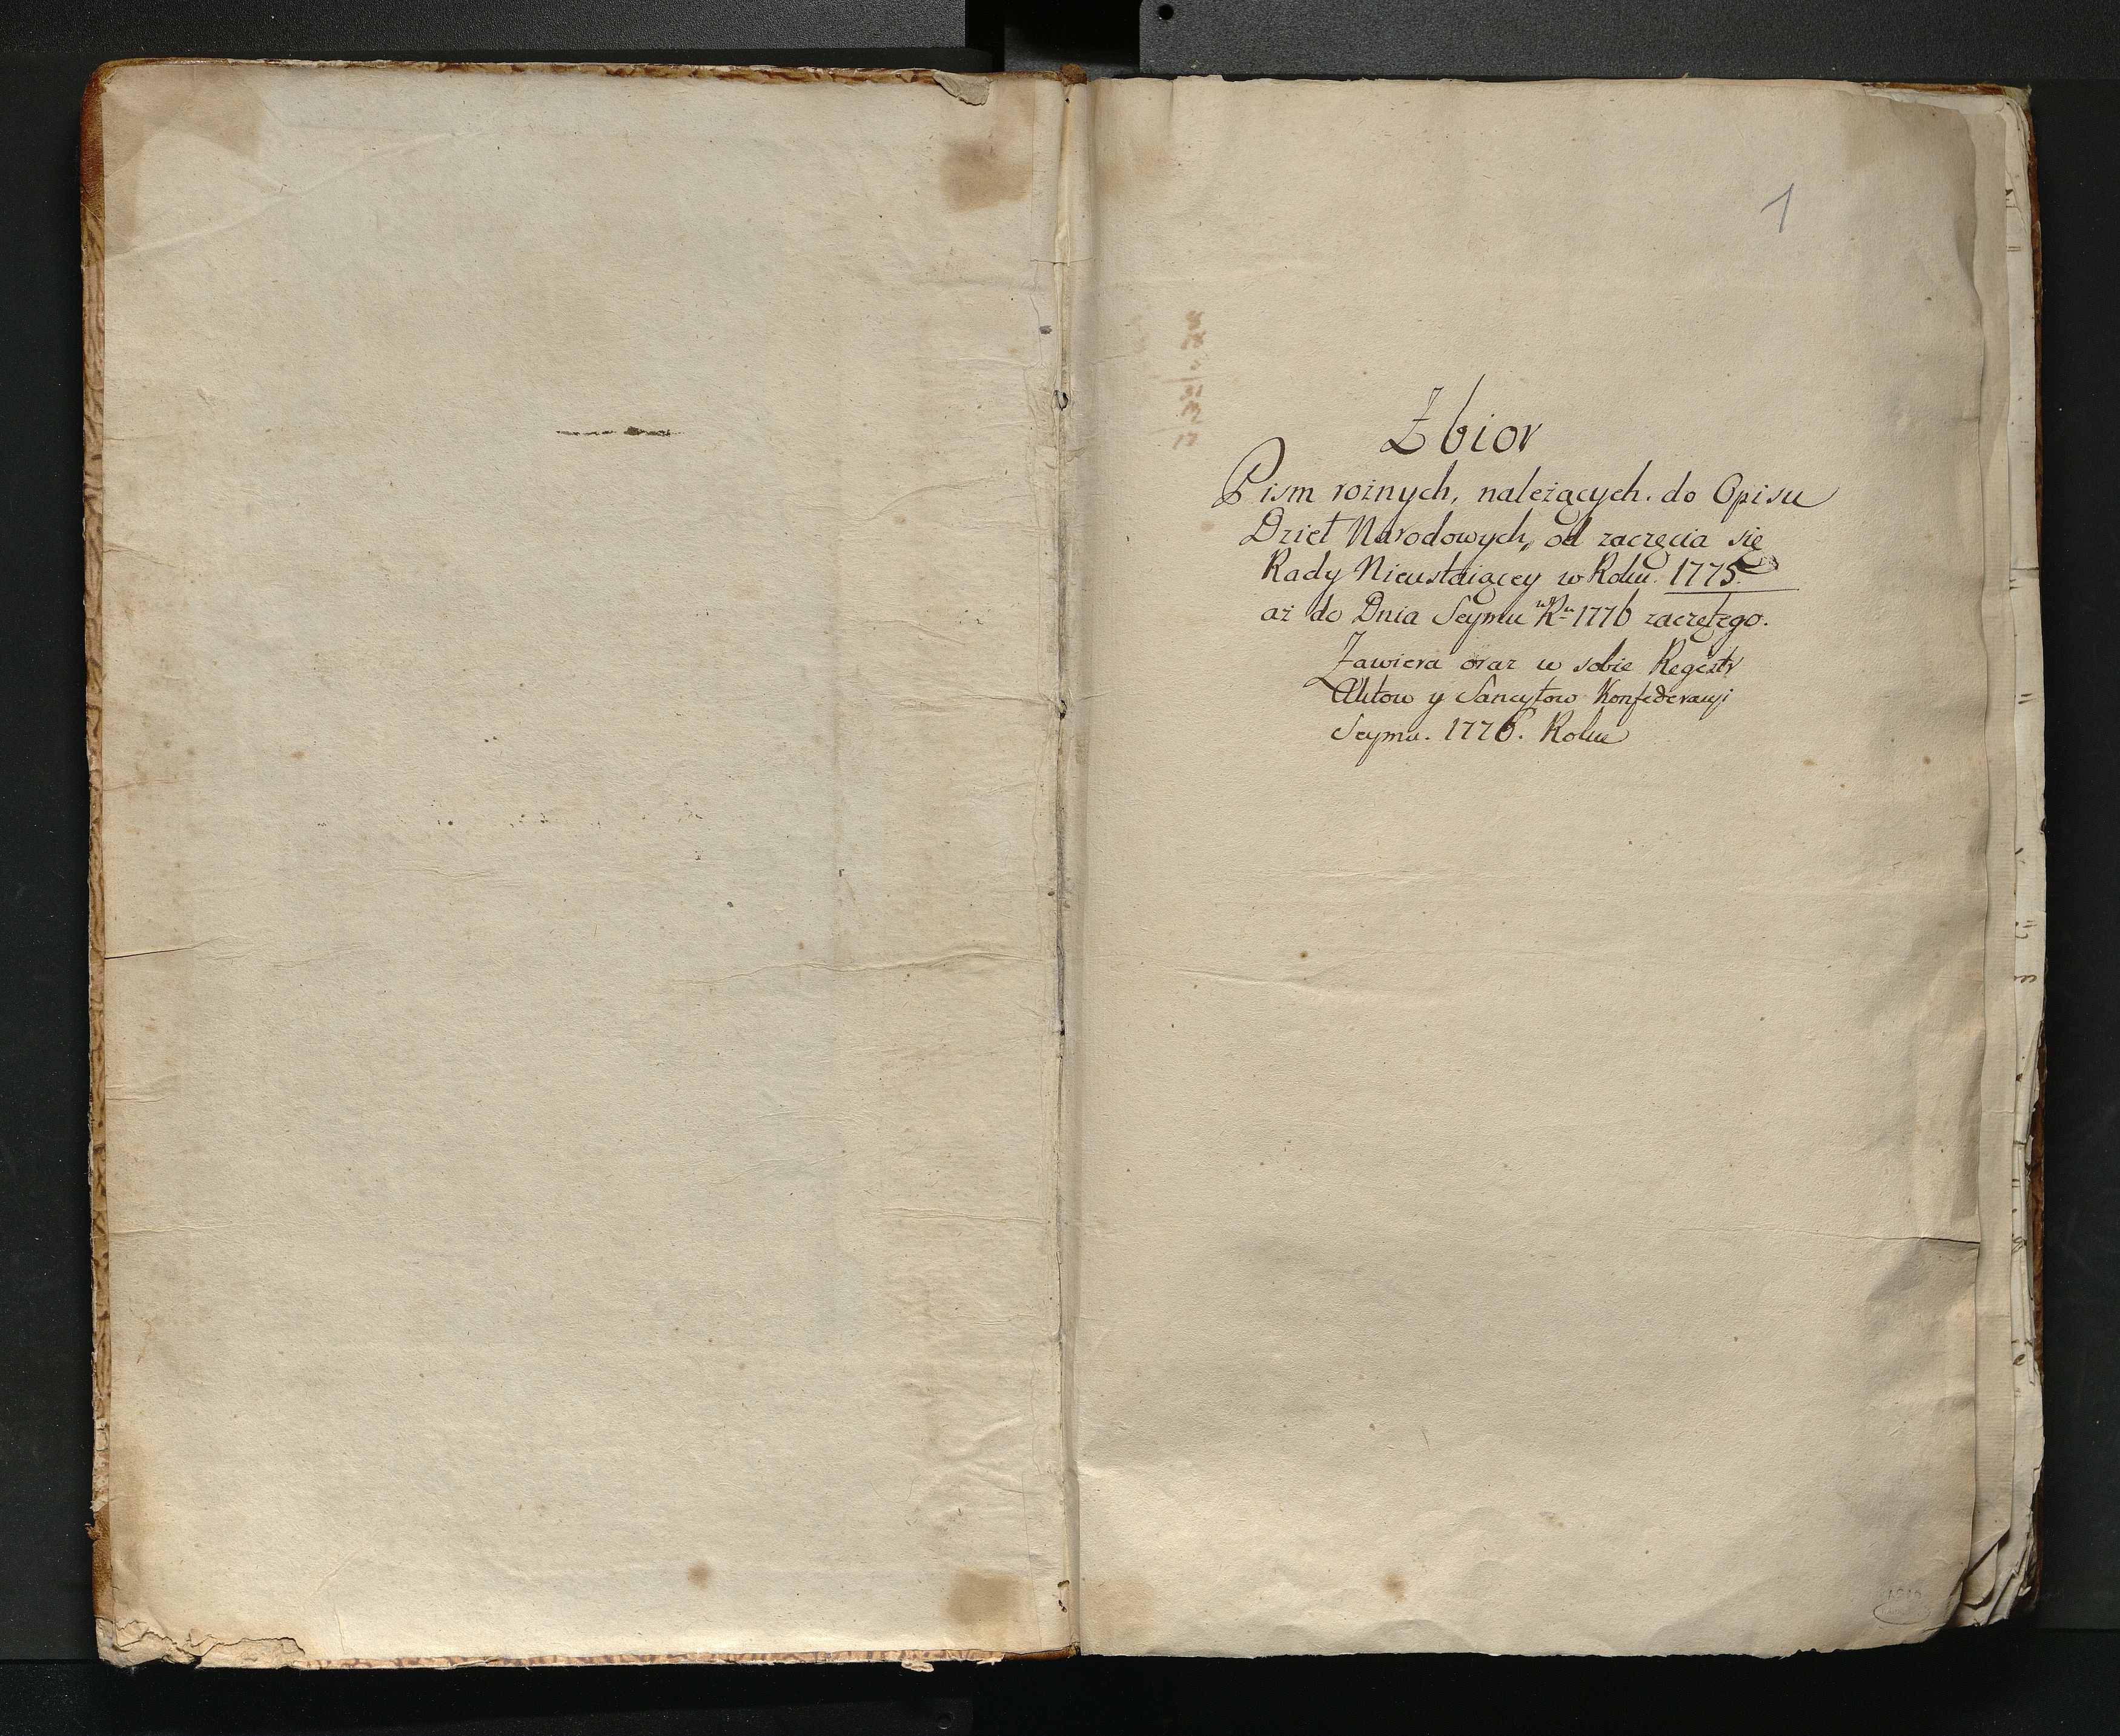 1
Zbior
Pism rożnych, należących do Opisu
Dzieł Narodowych, od zaczęcia się
Rady Nieustaiącey w Roku 1775.
aż do Dnia Seymu w R. 1776 zaczętego.
Zawiera oraz w sobie Regestr
Aktow y Sancytow Konfederacyi
Seymu. 1776. Roku